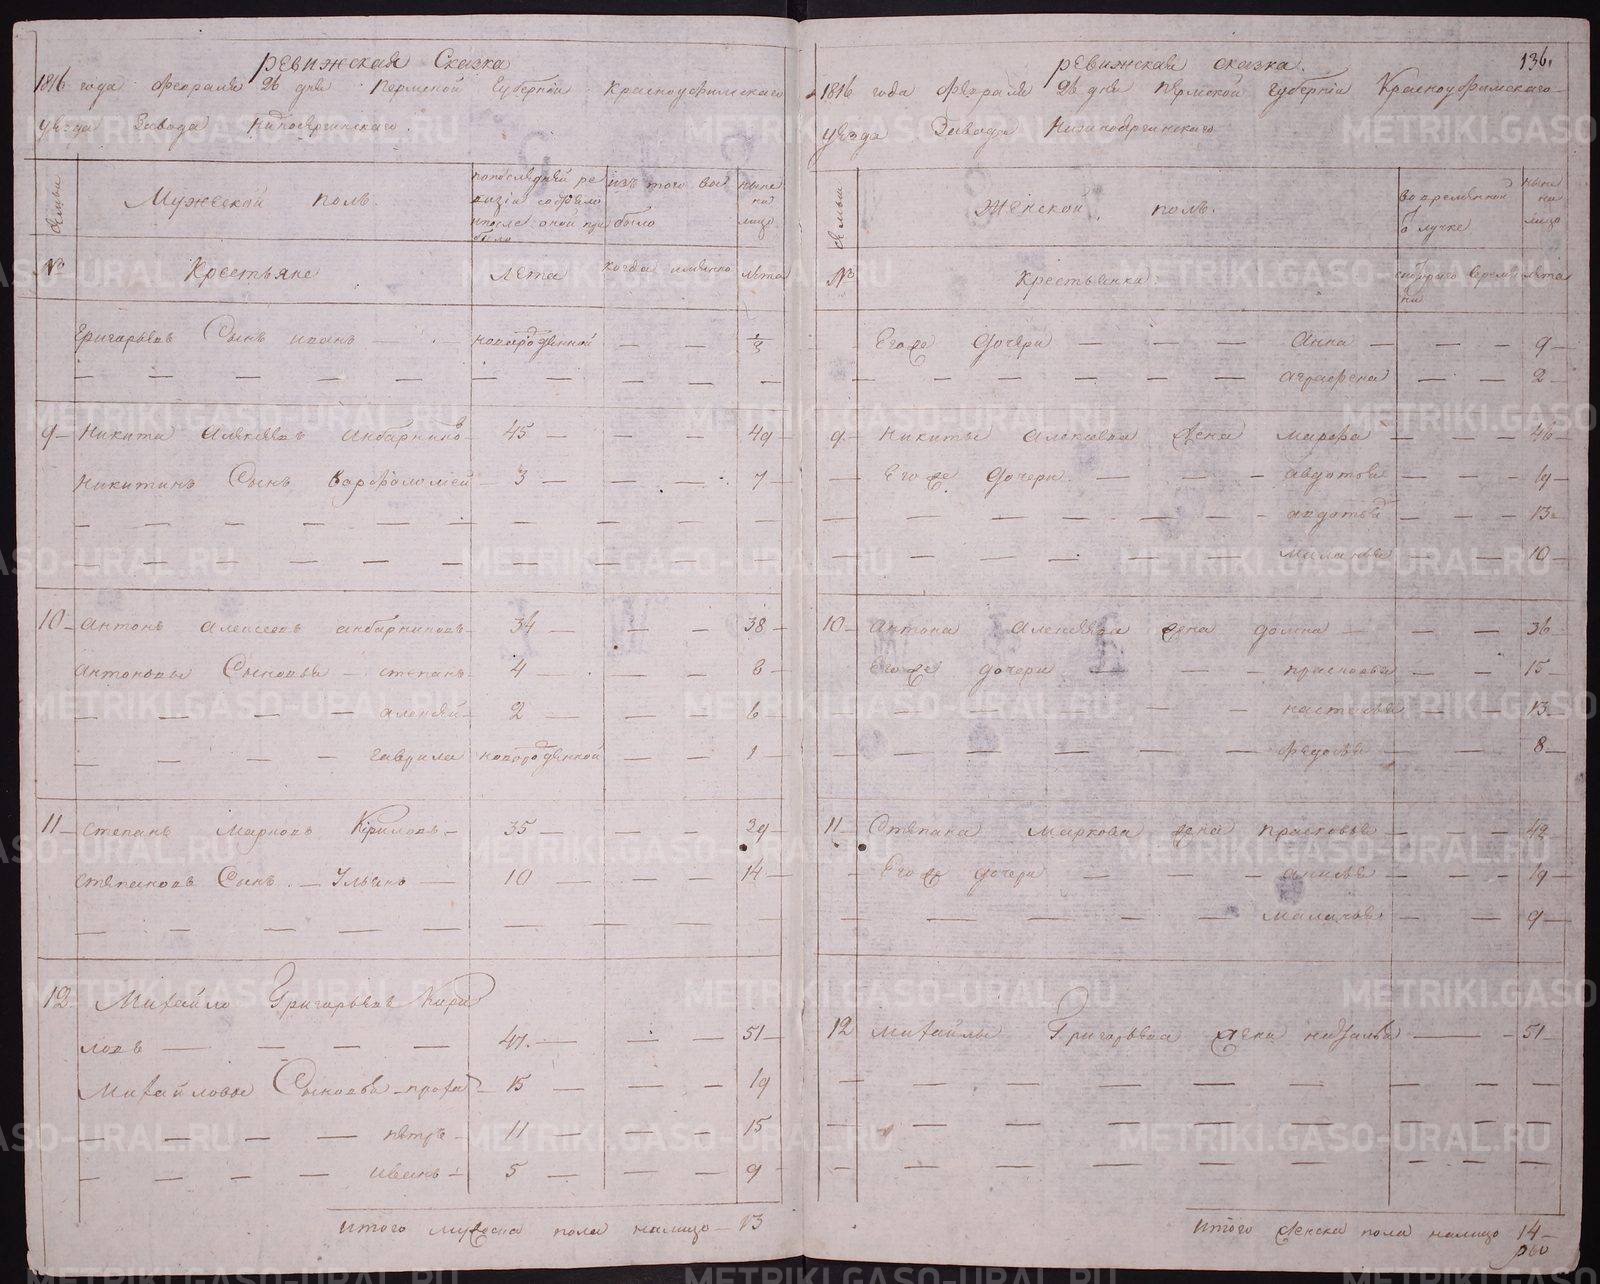 ревижская Сказка
1816 года Февраля 26 дня Пермской Губерной Красноуфимскаго
уезда Завода Нипосергинскаго.
Семьи
Мужеской полъ.
попоследней ре
визiи состояло
ипосле оной при
было
изъ того вы
было
ныне
на
лицо
№
Крестьяне
Лета
когда имянно
лета
Григорьевъ Сынъ иванъ новорожденной
Никита Алексеевъ Анбарников
9 45 49
Никитинъ Сынъ Варфоломей 3 7
10 Антонъ Алексеевъ анбарниковъ 34 38
Антоновы Сыновья степанъ 4 8
Алексей 2 6
гаврила новорожденной 1
11 Степанъ Марковъ Кириловъ 35 39
Степановъ Сынъ Ульянъ 10 14
12 Михайло Григорьевъ Кири
ловъ 47 51
Михайловы Сыновья 15 19
петръ 11 15
иванъ 5 9
итого мужеска пола налицо 13
136.
ревижская сказка.
1816 года Февраля 26 дня Пермской Губернiи Красноуфимскаго
уезда Завода Нижносергинскаго
Семьи
Женской полъ.
во временной
отлучке
ныне
на
лицо
№
Крестьянки
скотораго време
ни
лета
Егоже дочери Анна 9
аграфена 2
9 Никиты Алексеева жена марфа 46
Егоже дочери авдотья 19
авдотья 13
миланья 10
10 Антона Алексеева жена домна 36
Егоже дочери прасковья 15
настасья 13
федосья 8
11 Степана Маркова жена прасковья 42
Егоже дочери анисья 19
маланья 9
12 Михайлы Григорьева жена наталья 51
итого женска пола налицо 14
METRIKI.GASO-URAL.RU